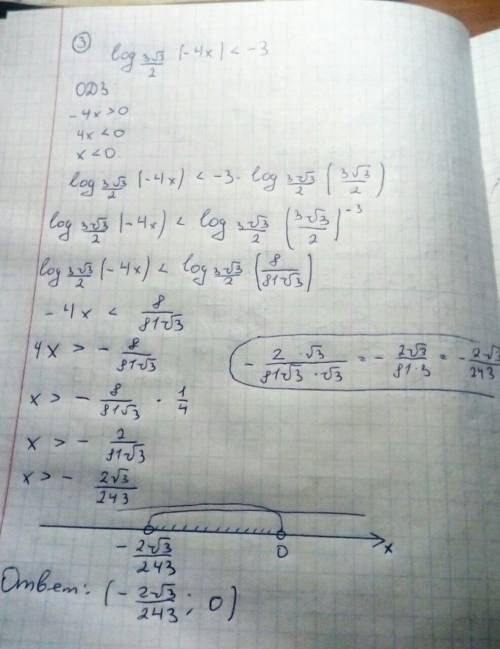 ③ log_{3√3/2} (-4x) < -3
ОДЗ
-4x > 0
4x < 0
x < 0.
log_{3√3/2} (-4x) < -3 · log_{3√3/2} (3√3/2)
log_{3√3/2} (-4x) < log_{3√3/2} (3√3/2)^{-3}
log_{3√3/2} (-4x) < log_{3√3/2} (8/81√3)
-4x < 8/81√3
4x > - 8/81√3
- 2·√3/81√3·√3 = - 2√3/81·3 = - 2√3/243
x > - 8/81√3 · 1/4
x > - 2/81√3
x > - 2√3/243
- 2√3/243 0 x
Ответ: (- 2√3/243; 0)